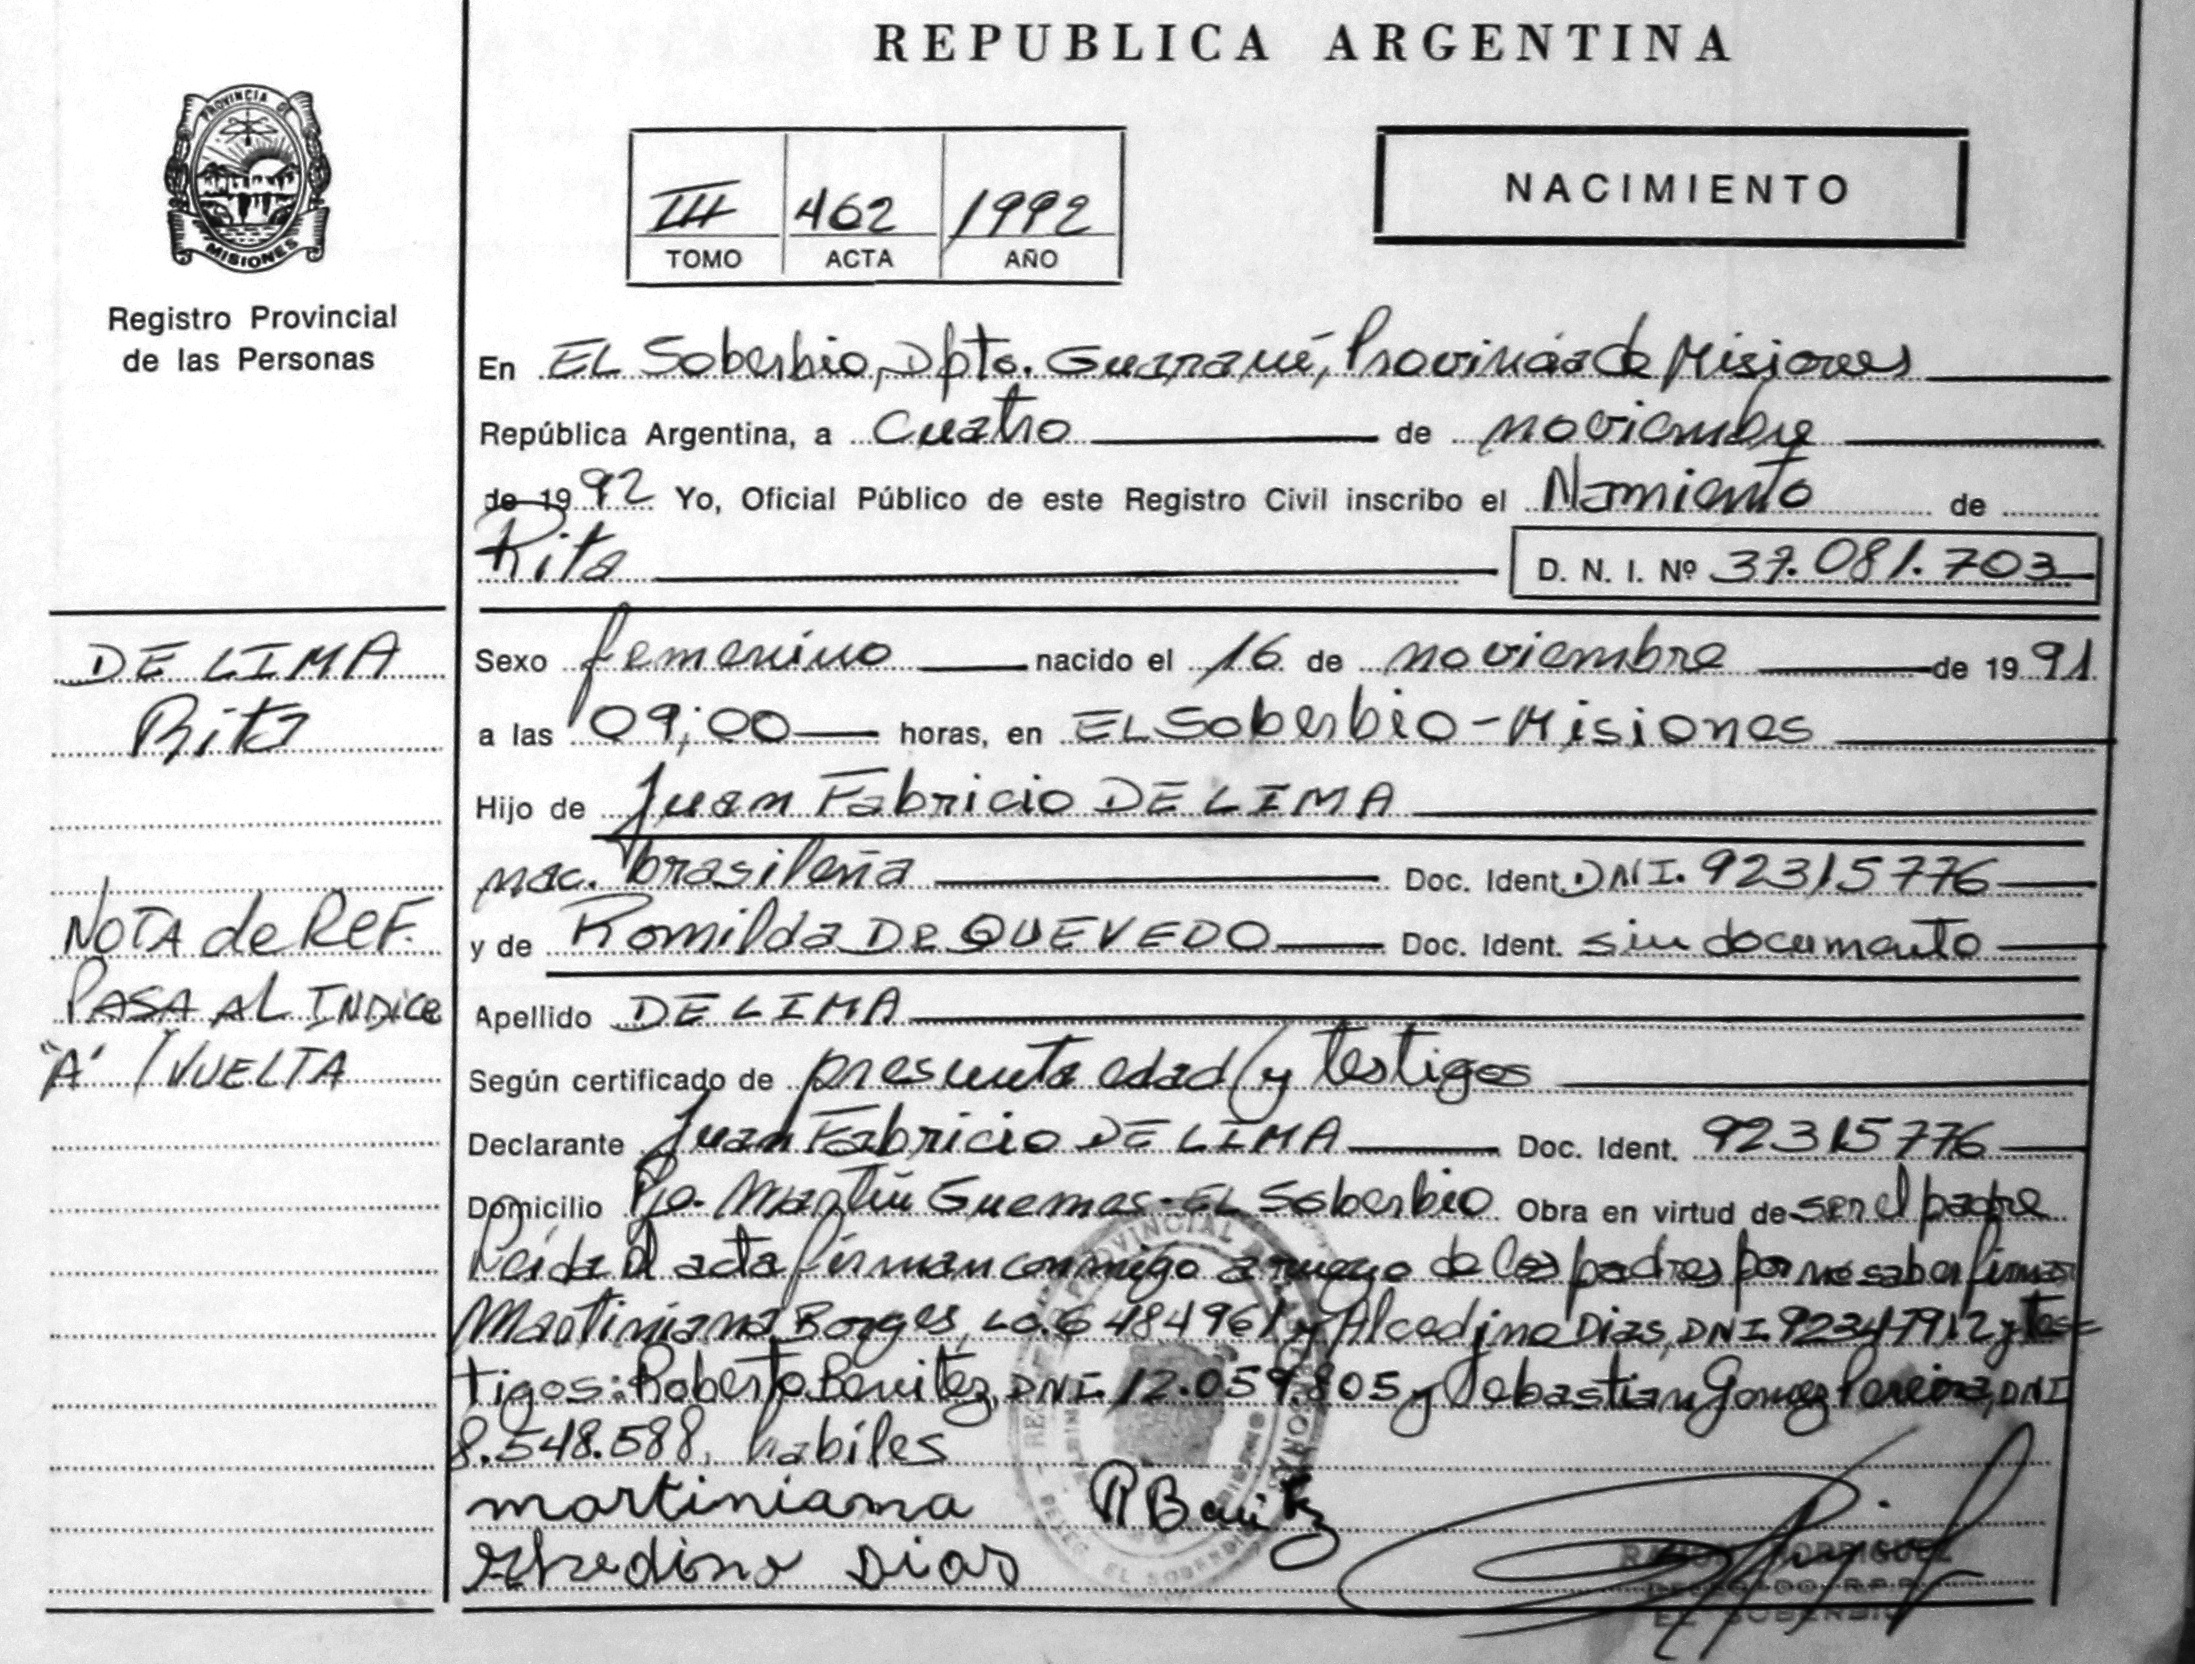 REPUBLICA ARGENTINA
PROVINCIA DE
MISIONES
Registro Provincial
de las Personas
III 462 1992
TOMO ACTA AÑO
NACIMIENTO
En EL Soberbio, Dpto. Guaraní, Provincia de Misiones
República Argentina, a cuatro de noviembre
de 1992 Yo, Oficial Público de este Registro Civil inscribo el Namiento de
Rita D. N. I. Nº 37.081.703
DE LIMA
Rita
NOTA de REF.
PASA AL INDice
"A" / VUELTA
Sexo femenino nacido el 16 de noviembre de 1991
a las 09;00 horas, en EL Soberbio - Misiones
Hijo de Juan Fabricio DE LIMA
nac. brasileña Doc. Ident. DNI. 92315776
y de Romilda De QUEVEDO Doc. Ident. sin documento
Apellido DE LIMA
Según certificado de presunta edad y testigos
Declarante Juan Fabricio DE LIMA Doc. Ident. 92315776
Domicilio Pje. Martín Guemes - EL Soberbio Obra en virtud de ser el padre
Leida el acta firman conmigo a ruego de los padres por no saber firmar
Martiniana Borges, LC. 6484961 y Alcedino Dias, DNI 92347912 y tes=
tigos: Roberto Benitez, DNI 12.059.805 y Sebastian Gomez Pereira, DNI
8.548.588, habiles
martiniana R Benitez
Dias
RAMON RODRIGUEZ
DELEGADO R.P.P.
EL SOBERBIO